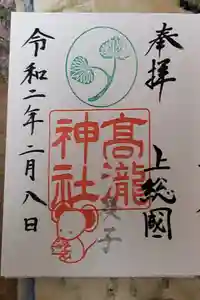 奉拝
上総國
髙瀧
神社
庚子
令和二年二月八日